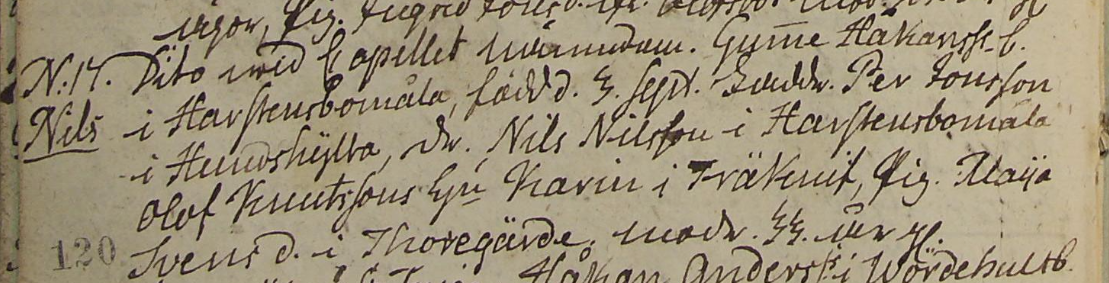 ugor, Pig. Ingrid Jonsd.
N:17. Dito wid Capellet Gum̅e Håkansss. b.
Nils i Harstensbomåla, född d. 3. Sept. Faddr. Per Jonsson
i Hundshylta, Dr. Nils Nilsson i Harstensbomåla
Olof Knutssons Hu Karin i Träknif, Pig. Maija
120 Svensd. i Thoregärde. modr. 33. år g.
Håkan Anderss. i Wördehultb.